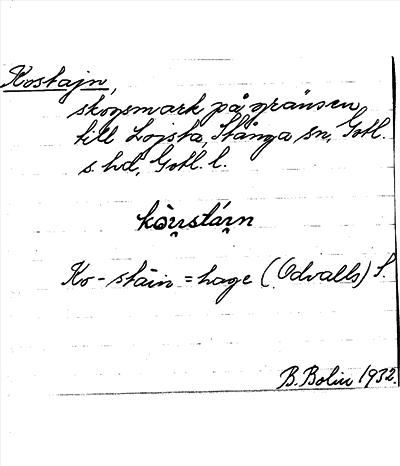 Kostajn,
skogsmark på gränsen
till Lojsta, Stånga sn, Gotl.
s. hd, Gotl. l.
Ko-stäin = hage (Odvalls) S.
B. Bolin 1932.